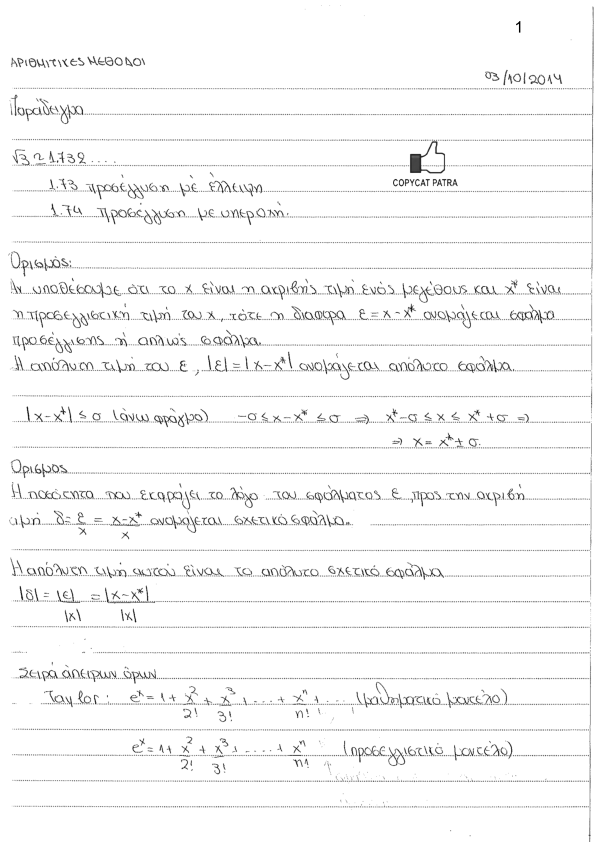 1
ΑΡΙΘΜΙΤΙΚΕΣ ΜΕΘΟΔΟΙ
03/10/2014
Παράδειγμα
√3 ≃ 1.732....
COPYCAT PATRA
1.73 προσέγγιση μέ έλλειψη
1.74 προσέγγιση με υπεροχή.
Ορισμός:
Αν υποθέσουμε ότι το x είναι η ακριβής τιμή ενός μεγέθους και x* είναι
η προσεγγιστική τιμή του x, τότε η διαφορα ε = x - x* ονομάζεται σφάλμα
προσέγγισης ή απλώς σφάλμα.
Η απόλυτη τιμή του ε, |ε| = |x - x*| ονομάζεται απόλυτο σφάλμα.
|x - x*| ≤ σ (άνω φράγμα) -σ ≤ x - x* ≤ σ ⇒ x* - σ ≤ x ≤ x* + σ ⇒
⇒ x = x* ± σ.
Ορισμος
Η ποσότητα που εκφράζει το λόγο του σφάλματος ε, προς την ακριβή
τιμή δ = ε/x = x-x*/x ονομάζεται σχετικό σφάλμα.
Η απόλυτη τιμή αυτού είναι το απόλυτο σχετικό σφάλμα
|δ| = |ε|/|x| = |x-x*|/|x|
Σειρά άπειρων όρων
Taylor: eˣ = 1 + x²/2! + x³/3! + .... + xⁿ/n! + ... (μαθηματικό μοντέλο)
eˣ = 1 + x²/2! + x³/3! + .... + xⁿ/n! (προσεγγιστικό μοντέλο)